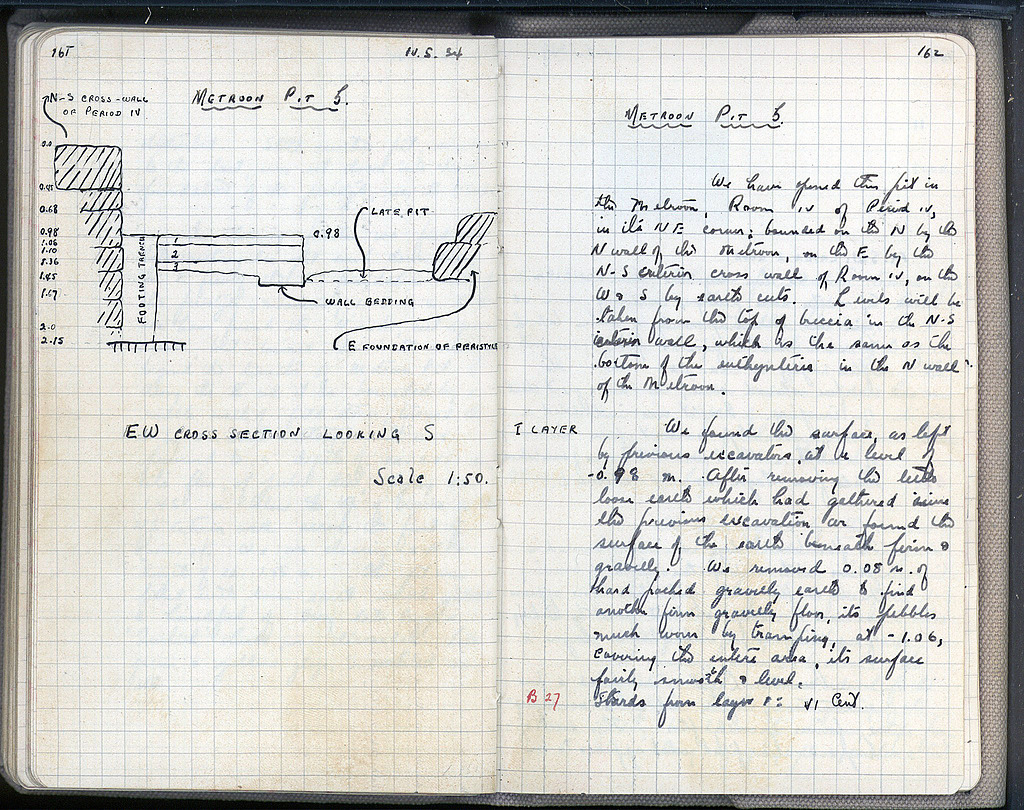 161
14.5.34
METROON PIT 5.
N-S CROSS-WALL
OF PERIOD IV
0.0
0.45
0.68
0.98
1.06
1.10
1.36
1.45
1.67
2.0
2.15
FOOTING TRENCH
1
2
3
0.98
LATE PIT
WALL BEDDING
E FOUNDATION OF PERISTYLE
EW CROSS SECTION LOOKING S
Scale 1:50.
162
METROON PIT 5.
We have opened this pit in
the Metroon, Room IV of Period IV,
in its NE corner; bounded on the N by the
N wall of the Metroon, on the E by the
N-S exterior cross wall of Room IV, on the
W & S by earth cuts. Levels will be
taken from the top of breccia in the N-S
wall, which is the same as the
bottom of the euthynteria in the N wall
of the Metroon.
I LAYER
We found the surface, as left
by previous excavators, at a level of
-0.98 m. After removing the little
loose earth which had gathered since
the previous excavation we found the
surface of the earth beneath firm &
gravelly. We removed 0.08 m. of
hard packed gravelly earth to find
another firm gravelly floor, its pebbles
much worn by tramping, at -1.06,
covering the entire area, its surface
fairly smooth & level.
B 27
Sherds from layer 1: VI Cent.